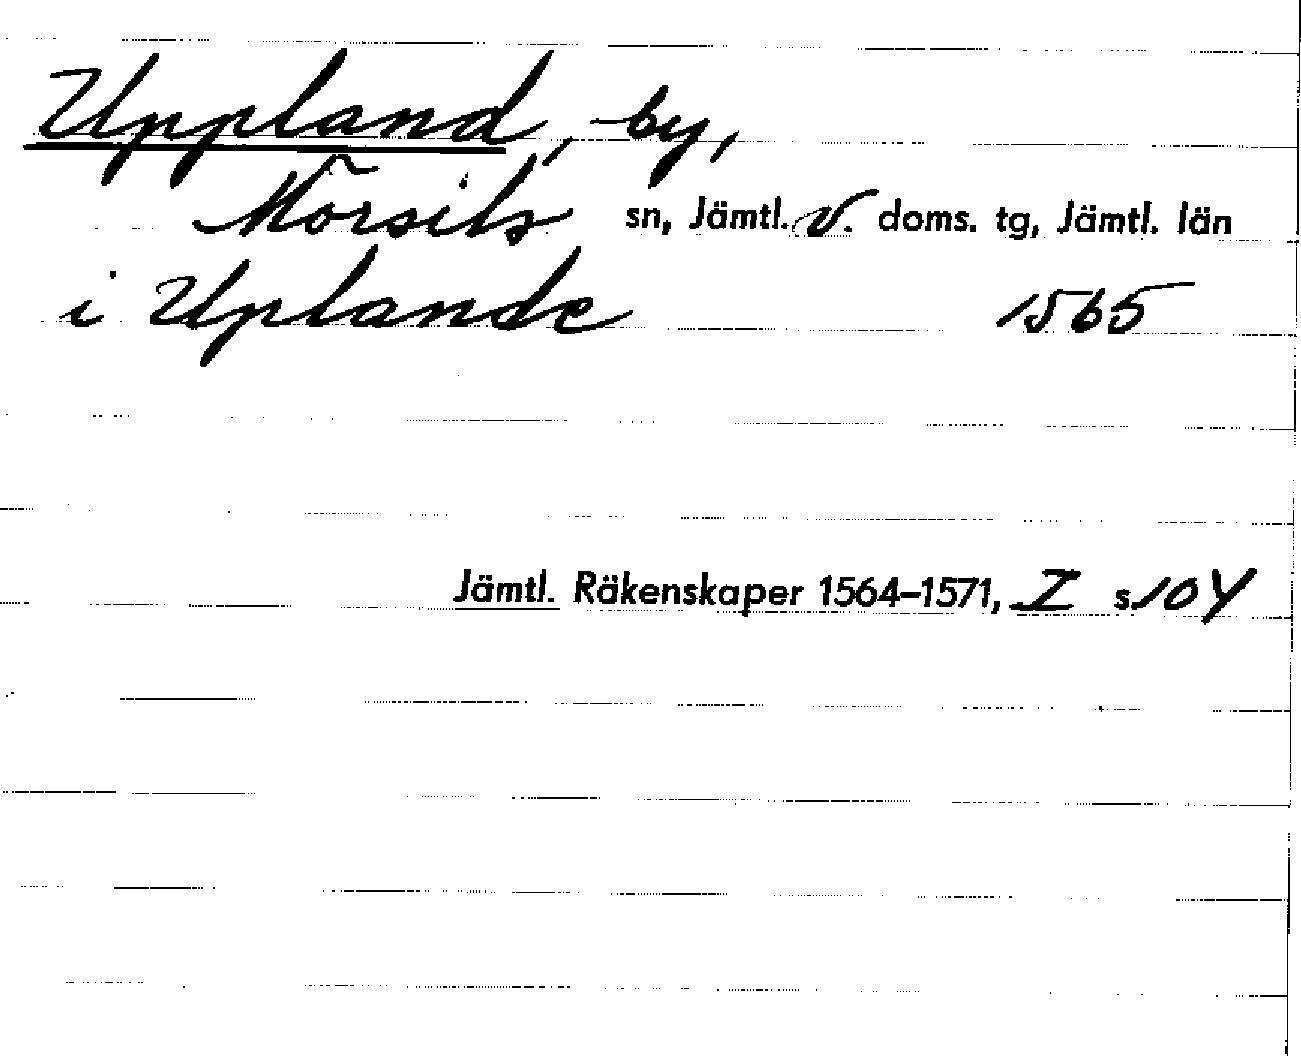 Uppland, by,
Mörsils sn, Jämtl. v. doms. tg, Jämtl. län
i Uplande 1565
Jämtl. Räkenskaper 1564–1571, I s. 104